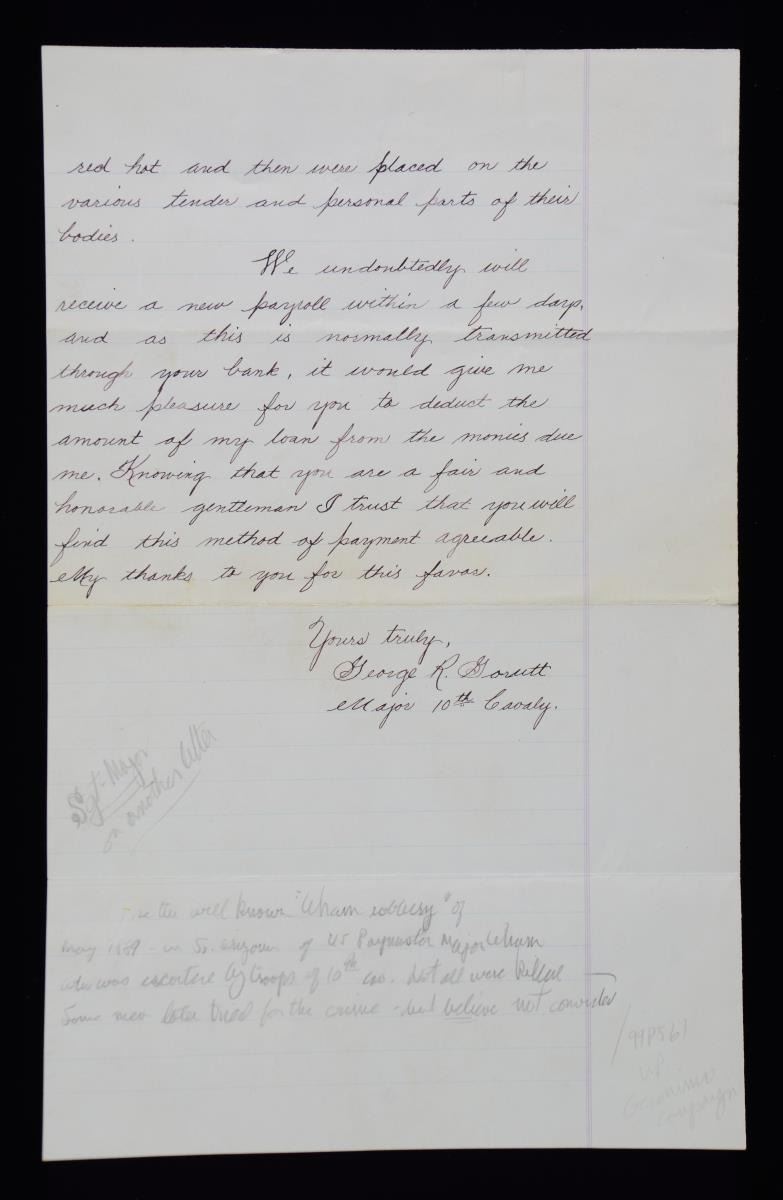 red hot and then were placed on the
various tender and personal parts of their
bodies.
We undoubtedly will
receive a new payroll within a few days,
and as this is normally transmitted
through your bank, it would give me
much pleasure for you to deduct the
amount of my loan from the monies due
me. Knowing that you are a fair and
honorable gentleman I trust that you will
find this method of payment agreeable.
My thanks to you for this favor.
Yours truly,
George R.
Major 10th Cavaly.
Sgt-Major
on another letter
the well known "Wham robbery" of
May 1889 - in So. Arizona of US Paymaster Major Wham
who was escorted by troops of 10th cav. Not all were killed -
Some men later tried for the crime - but believe not
/ 99P561
UP
Geronimo
campaign